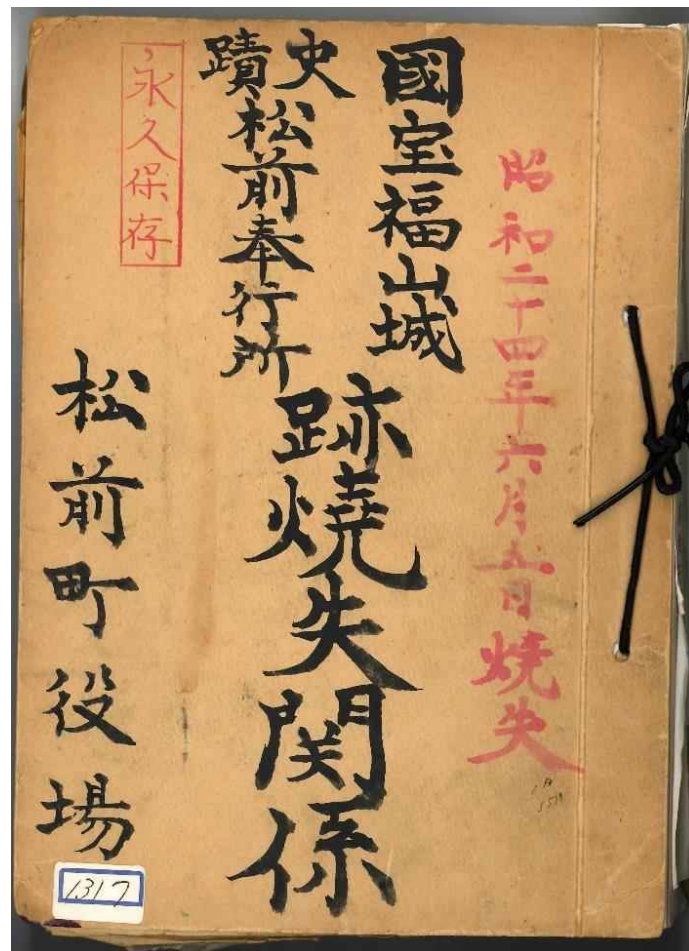 昭和二十四年六月五日焼失
國宝福山城
史蹟松前奉行所
跡燒失関係
永久保存
松前町役場
1317